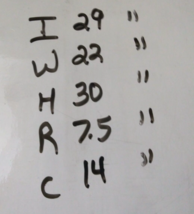 I 29 "
W 22 "
H 30 "
R 7.5 "
C 14 "